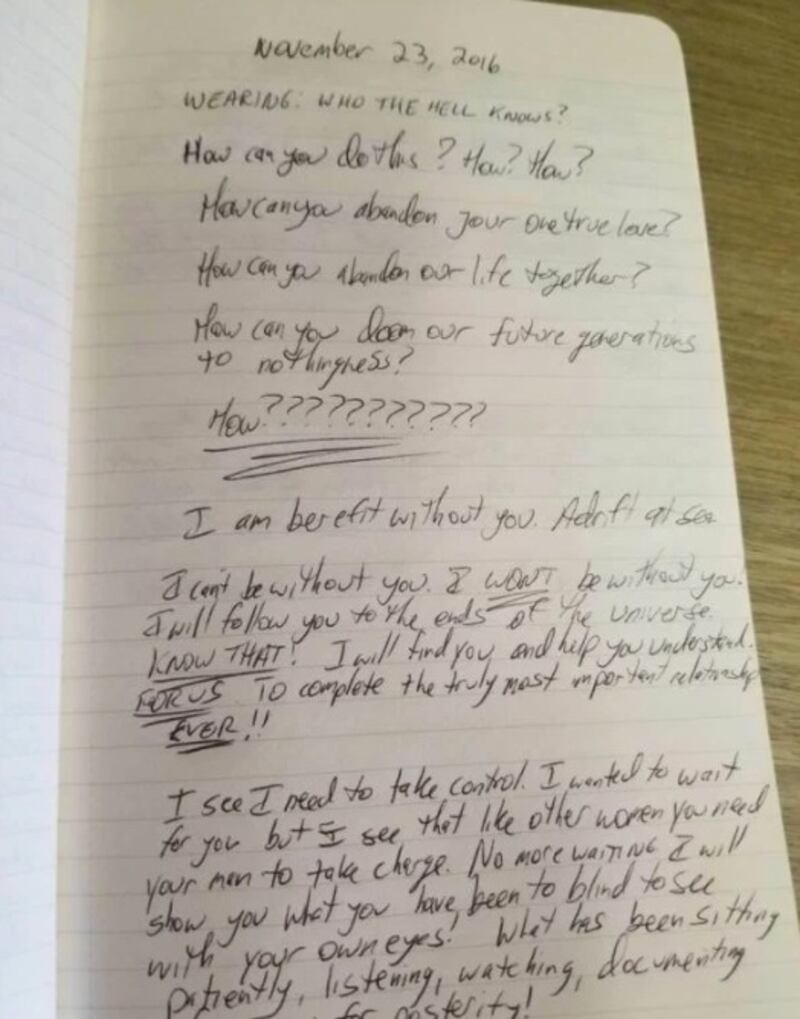 November 23, 2016
WEARING: WHO THE HELL KNOWS?
How can you do this? How? How?
How can you abandon your one true love?
How can you abandon our life together?
How can you doom our future generations
to nothingness?
How???????????
I am berefit without you. Adrift at sea
I can't be without you. I WONT be without you!
I will follow you to the ends of the universe.
KNOW THAT! I will find you and help you understand.
FOR US. To complete the truly most important relationship
EVER!!
I see I need to take control. I wanted to wait
for you but I see that like other women you need
your man to take charge. No more waiting I will
show you what you have been to blind to see
with your own eyes! What has been sitting
patiently, listening, watching, documenting
for posterity!